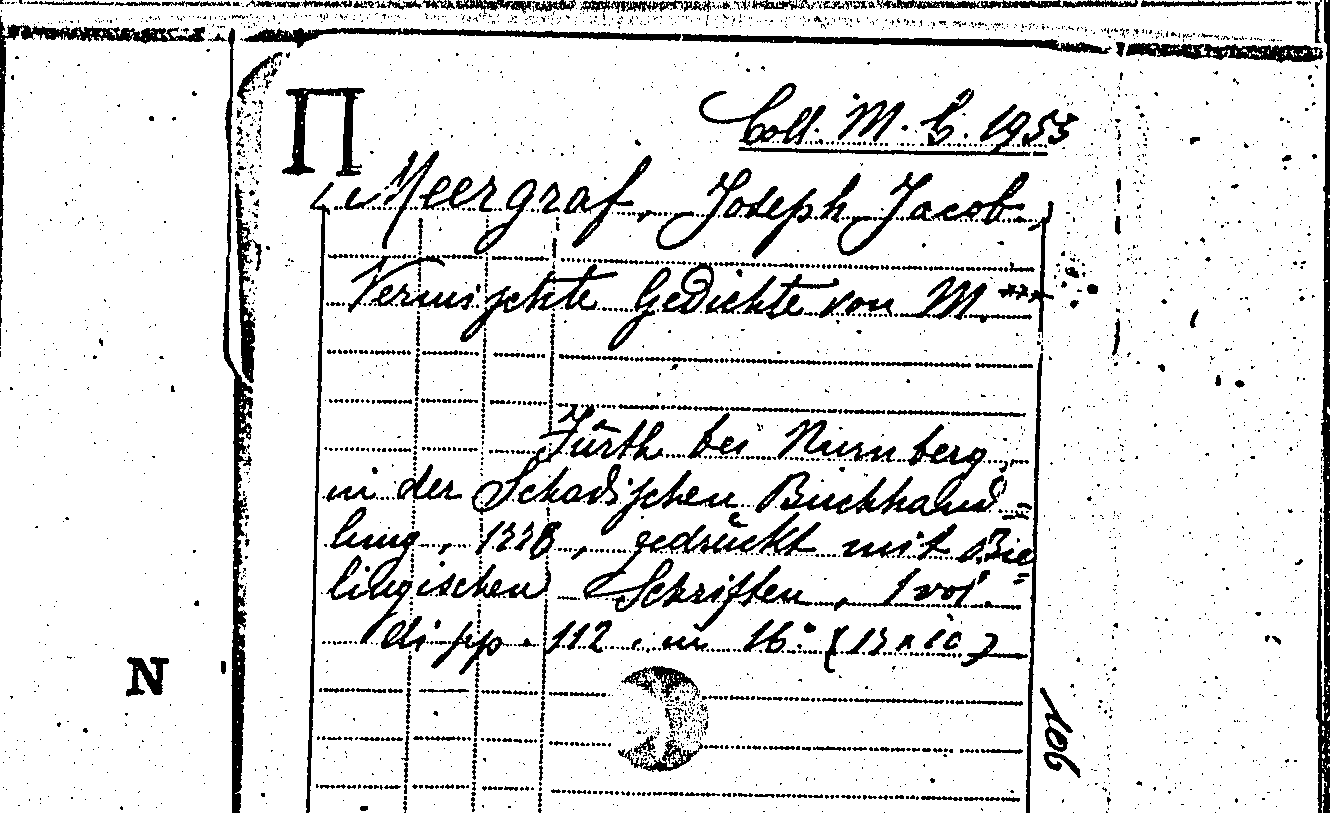 Π
Coll. M. C. 1953
Meergraf, Joseph Jacob,
Vermischte Gedichte von M.***
Fürth bei Nürnberg,
in der Schadischen Buchhand=
lung, gedrückt mit Bie=
lingischen Schriften, 1 vol.
di pp. 112. in 16° (15 x 10)
N
106